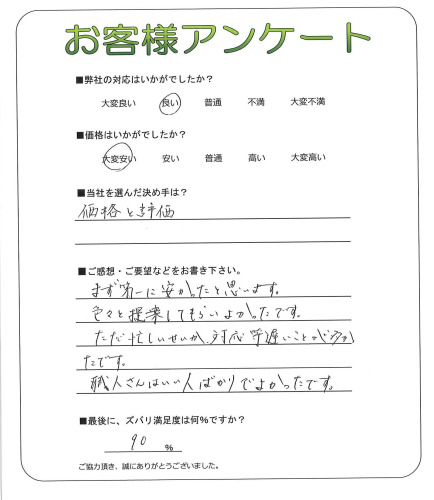 お客様アンケート
■弊社の対応はいかがでしたか？
大変良い 良い 普通 不満 大変不満
■価格はいかがでしたか？
大変安い 安い 普通 高い 大変高い
■当社を選んだ決め手は？
価格と評価
■ご感想・ご要望などをお書き下さい。
まず第一に安かったと思います。
色々と提案してもらいよかったです。
ただ忙しいせいか、対応等遅いことが多か
たです。
職人さんはいい人ばかりでよかったです。
■最後に、ズバリ満足度は何％ですか？
90 ％
ご協力頂き、誠にありがとうございました。